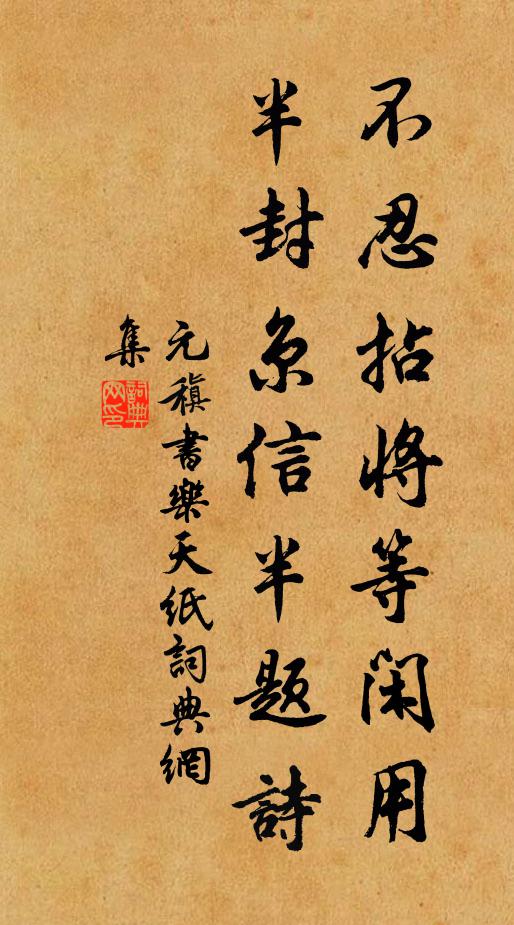 不忍拈將等閑用
半封京信半題詩
元稹書樂天紙詞典網
集
詞典
網印